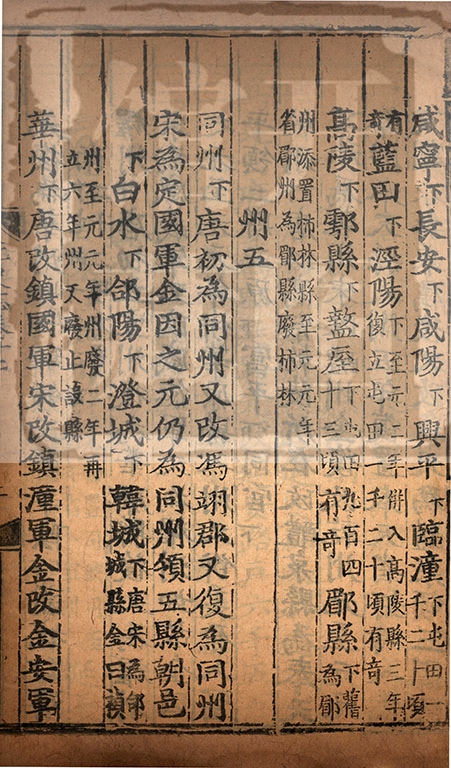 咸寧下長安下咸陽下興平下臨潼下屯田一千二十頃
有奇藍田下涇陽下至元二年併入高陵縣三年復立屯田一千二十頃有奇
高陵下鄠縣下盩厔下屯田九百四十三頃有奇郿縣下舊為郿
州添置柿林縣至元元年省郿州為郿縣廢柿林
州五
同州下唐初為同州又改馮翊郡又復為同州
宋為定國軍金因之元仍為同州領五縣朝邑
下白水下郃陽下澄城下韓城下唐宋為城縣金曰禎
州至元元年州廢二年再立六年州又廢止設縣
華州下唐改鎮國軍宋改鎮潼軍金改金安軍